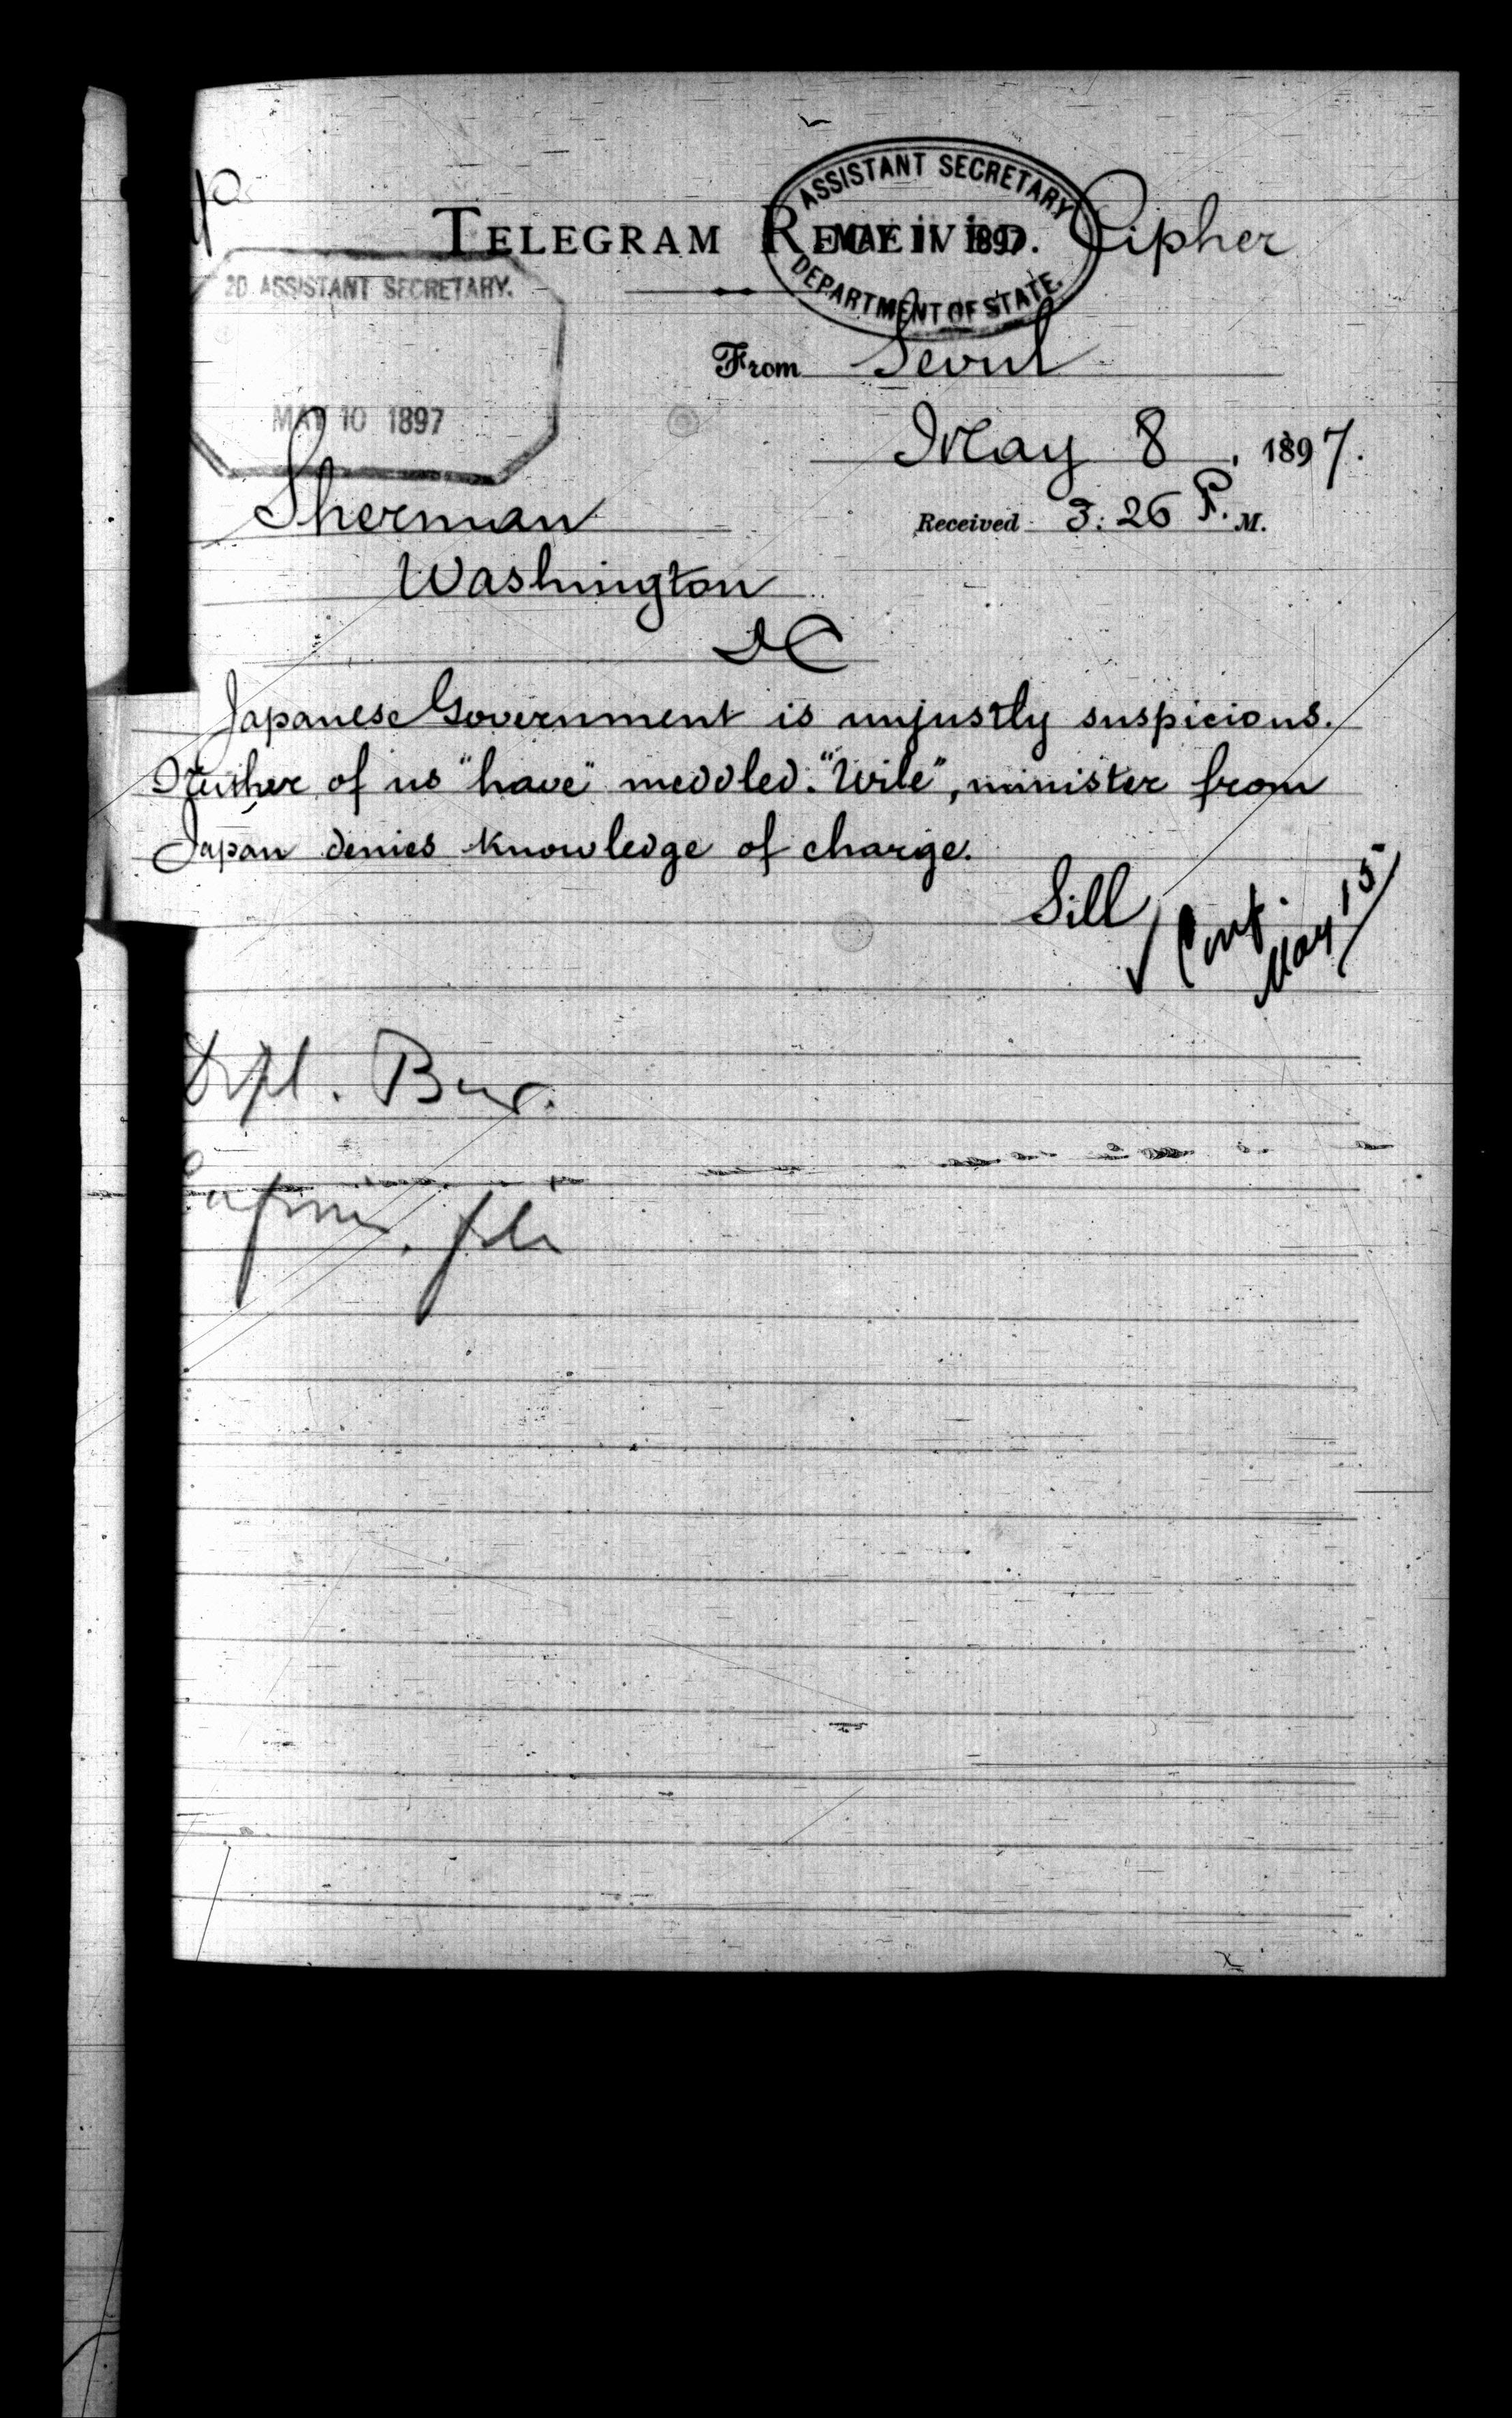 TELEGRAM RECEIVED. Cipher
ASSISTANT SECRETARY
MAY 11 1897
DEPARTMENT OF STATE
2D ASSISTANT SECRETARY.
MAY 10 1897
From Seoul
May 8, 1897.
Received 3:26 P. M.
Sherman
Washington
DC
Japanese Government is unjustly suspicious.
Neither of us "have" meddled. "Wile", minister from
Japan denies knowledge of charge.
Sill
May 15
Dipl. Bur.